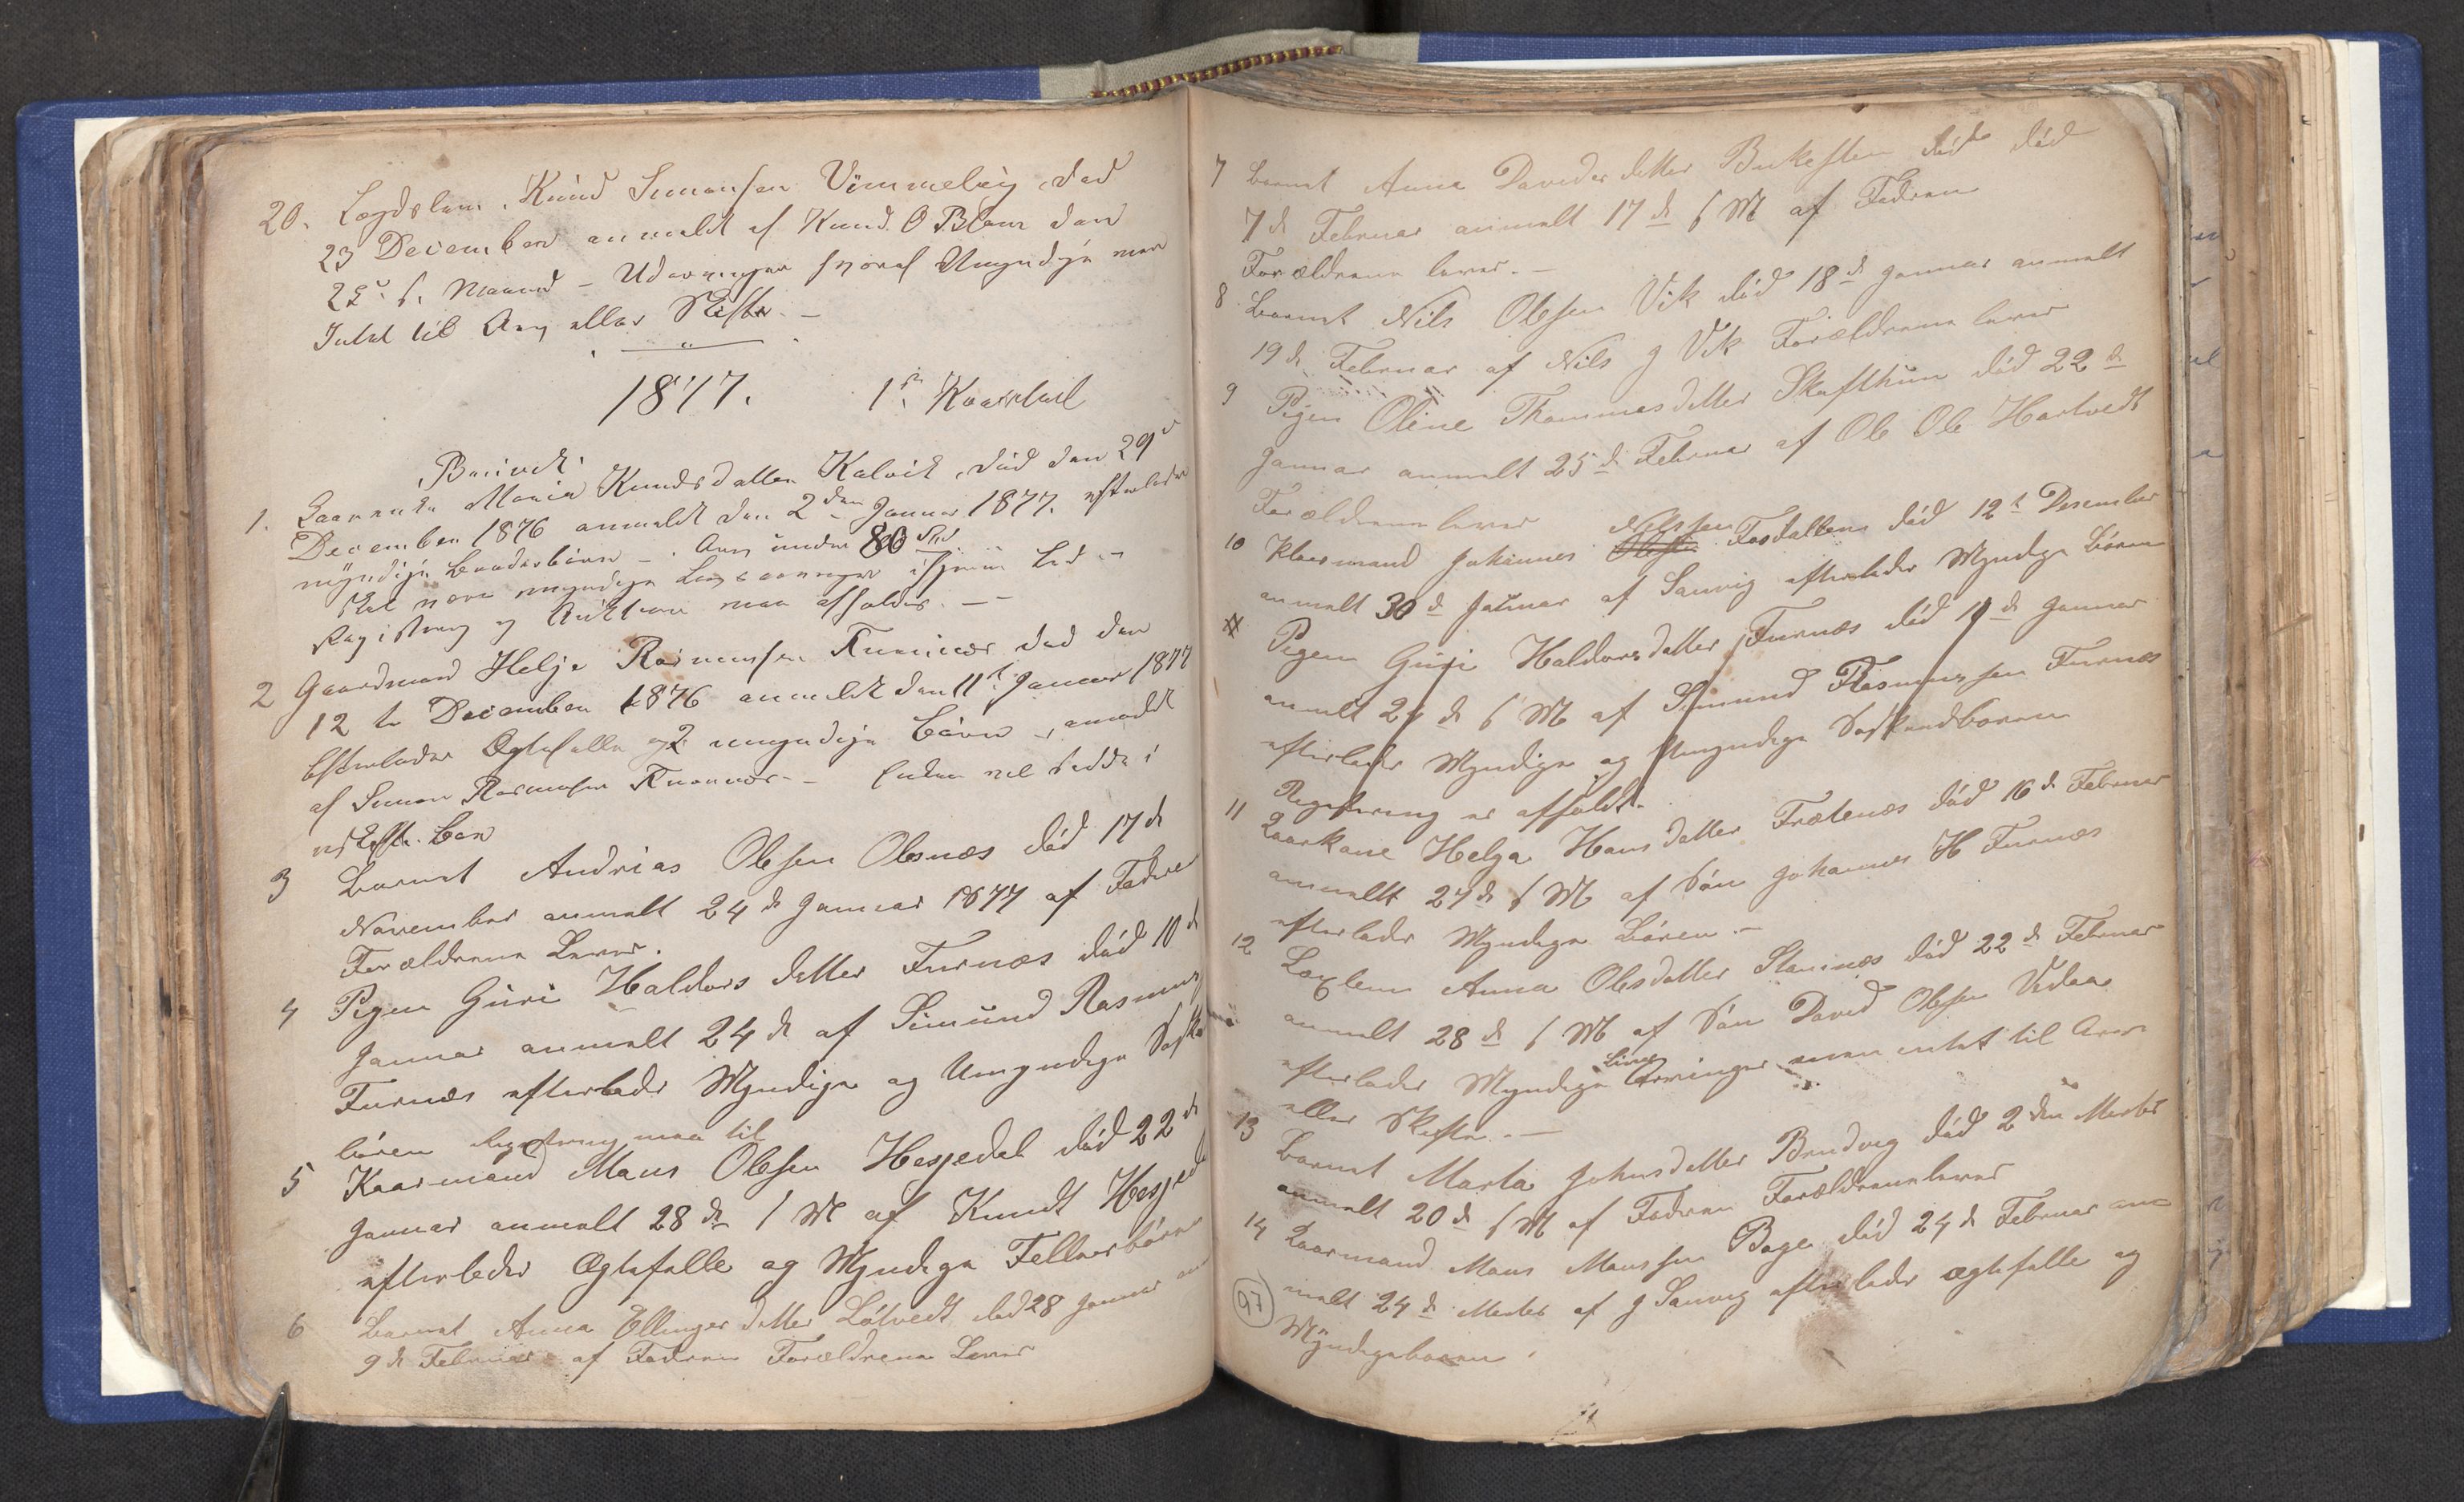 20. Lægdslem. Knud Simonsen Vimmelvig, død
23 December anmeldt af Knud O Blom den
28de s. Maaned – Udarvinger hvoraf Umyndige men
Intet til Arv eller Skifte. –
1877. 1ste Kvartal
1. Kaarenke Maria Knudsdatter Kalvik, død den 29d
December 1876 anmeldt den 2den Januar 1877. efterlader
myndige – Arv under 80 Spd
Registrering og Auktion maa afholdes. –
2 Gaardmand Helje Rasmussen død den
12te December 1876 anmeldt den 11te Januar 1877
Efterlader Ægtefælle og 2 umyndige Børn – anmeldt
af Simon Rasmussen – Enken vil sidde i
uskiftet Bo
3 Barnet Andrias Olsen Olsnæs død 17de
November anmelt 24de Januar 1877 af Fadren
Forældrene Lever.
4 Pigen Guri Haldors datter Furnæs død 10de
Januar anmelt 24de af Simund Rasmus
Furnæs efterlader Myndige og Umyndige Søsk
børen Registrering maa til
5 Kaarmand Mans Olsen Hesjedal død 22de
Januar anmelt 28de s M af Knudt Hesjed
efterleder Ægtefælle og Myndige Fellesbørn
6 Barnet Anna Ellingsdatter Løtvedt død 28 Januar an
9de Februar af Fadren Forældrene Lever
7 Barnet Anna Davids datter død
7de Februar anmelt 17de s M af Fadren
Forældrene lever. –
8 Barnet Nils Olsen Vik død 18de Januar anmelt
19de Februar af Nils J Vik Forældrene lever
9 Pigen Oline Thommasdatter Skafthun død 22de
Januar anmelt 25de Februar af Ole Ole Hartvedt
Forældrene lever
10 Kaarmand Johannes Olsen Nilssen død 12te Desember
anmelt 30de Januar af Samvig efterlader Myndige Børen
Pigen Guri Haldorsdatter Furnæs død 10de Januar
anmelt 24de s M af Simund Rasmussen Furnæs
efterlader Myndige og Umyndige Søskendbøren
Registrering er afholdt.
11 Kaarkone Helga Hansdatter død 16de Februar
anmeldt 27de s M af Søn Johannes H Furnæs
efterlader Myndige Børen –
12 Læglem Anna Olsdatter død 22de Februar
anmelt 28de s M af Søn David Olsen
efterlader Myndige Livs Arvinger men intet til Arv
eller Skifte. –
13 Barnet Marta Johnsdatter død 2den Marts
anmelt 20de s M af Fadren Forældrene lever
14 Kaarmand Mons Monssen Boge død 24de Februar an=
melt 24de Marts af J Samvig efterlader ægtefælle og
Myndigebøren.
97